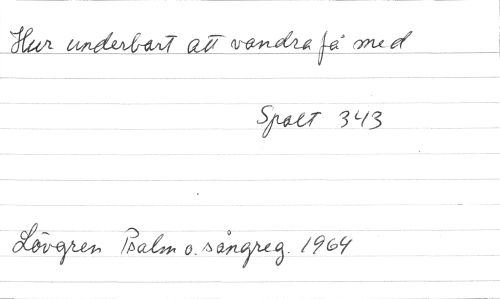 Hur underbart att vandra få med
Spalt 343
Lövgren Psalm o. sångreg. 1964